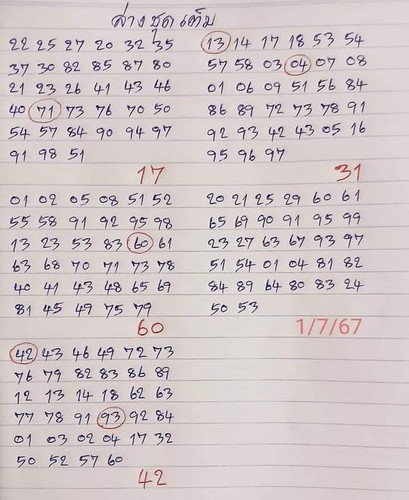 ล่างชุดเต็ม
22 25 27 20 32 35
37 30 82 85 87 80
21 23 26 41 43 46
40 71 73 76 70 50
54 57 84 90 94 97
91 98 51
17
13 14 17 18 53 54
57 58 03 04 07 08
01 06 09 51 56 84
86 89 72 73 78 91
92 93 42 43 05 16
95 96 97
31
01 02 05 08 51 52
55 58 91 92 95 98
13 23 53 83 60 61
63 68 70 71 73 78
40 41 43 48 65 69
81 45 49 75 79
60
20 21 25 29 60 61
65 69 90 91 95 99
23 27 63 67 93 97
51 54 01 04 81 82
84 89 64 80 83 24
50 53
1/7/67
42 43 46 49 72 73
76 79 82 83 86 89
12 13 14 18 62 63
77 78 91 93 92 84
01 03 02 04 17 32
50 52 57 60
42